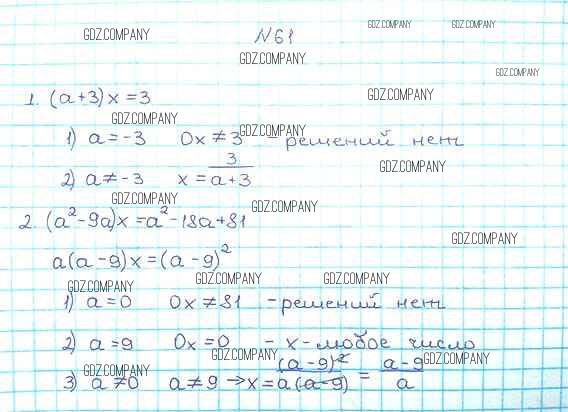 GDZ.COMPANY GDZ.COMPANY GDZ.COMPANY
N61
GDZ.COMPANY
GDZ.COMPANY
1. (a+3)x=3 GDZ.COMPANY
GDZ.COMPANY
1) a=-3 0x≠3 - решений нет
GDZ.COMPANY
2) a≠-3 x=3/(a+3) GDZ.COMPANY
GDZ.COMPANY GDZ.COMPANY
2. (a²-9a)x=a²-18a+81
GDZ.COMPANY
a(a-9)x=(a-9)²
GDZ.COMPANY GDZ.COMPANY GDZ.COMPANY
1) a=0 0x≠81 - решений нет
2) a=9 0x=0 - x - любое число
GDZ.COMPANY GDZ.COMPANY GDZ.COMPANY
3) a≠0 a≠9 → x=(a-9)²/a(a-9) = (a-9)/a